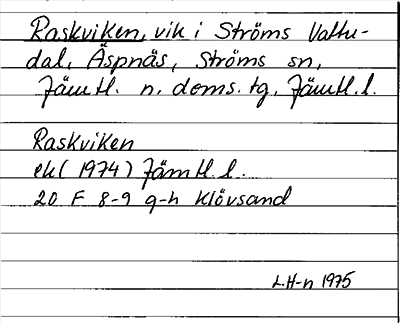 Raskviken, vik i Ströms Vattu-
dal, Äspnäs, Ströms sn,
Jämtl. n. doms. tg, Jämtl. l.
Raskviken
ek (1974) Jämtl. l.
20 F 8-9 g-h Klövsand
L.H-n 1975